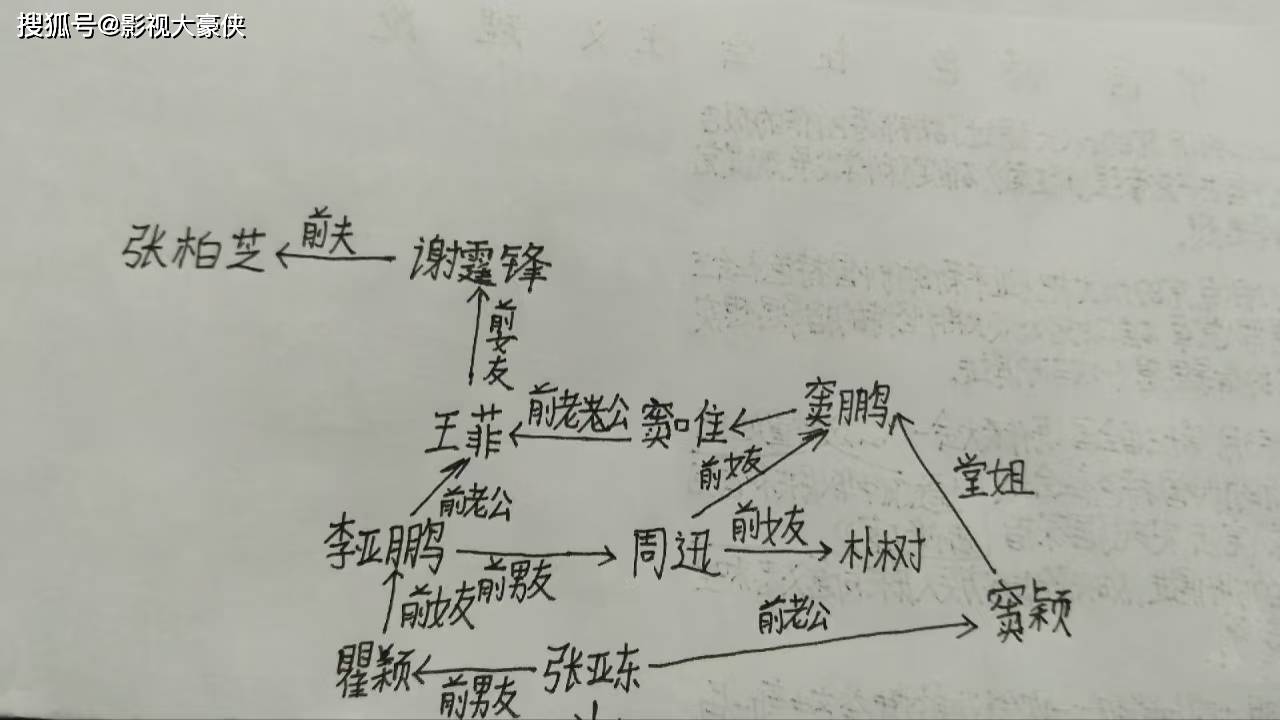 搜狐号@影视大豪侠
前夫
张柏芝
谢霆锋
前女友
王菲
前老老公
窦口住
窦鹏
前女友
堂姐
前老公
李亚鹏
前男友
周迅
前女友
朴树
前女友
前老公
窦颖
瞿颖
前男友
张亚东